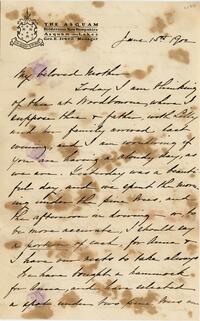 THE ASQUAM
Holderness New Hampshire
Asquam Lakes
Geo. E. Jewell Manager
June 15th 190
My beloved Mother
Today I am thinking
of thee at Woodbourne, where I
suppose thee & father, with
and her family arrived last
evening, and I am wondering if
you are having a cloudy day, as
we are. Yesterday was a beauti-
ful day, and we spent the morn-
ing under the pine trees, and
the afternoon in driving to
be more accurate, I should say
a portion of each, for Anna &
I have our rests to take always.
We have bought a hammock
for Anna, and have selected
a spot under two pine trees on